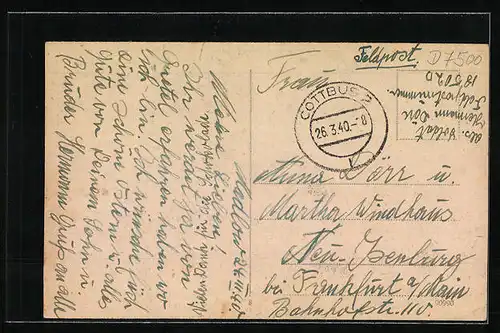 Madlow 24.III.40
Meine Lieben!
Ihr werdet ja von
Anna Dörr u.
Martha Windhaus
Neu-Isenburg
bei Frankfurt a/Main
Bahnhofstr. 110
Frau
Feldpost
D7500
Abs. Soldat
Hermann Dörr
Feldpostnummer
18502 D
COTTBUS 2
26.3.40.-8
erfahren haben wo
ich bin. Ich wünsche Euch
eine schöne Ostern u. alles
Gute von Deinem Sohn u.
Bruder Hermann Gruß an alle